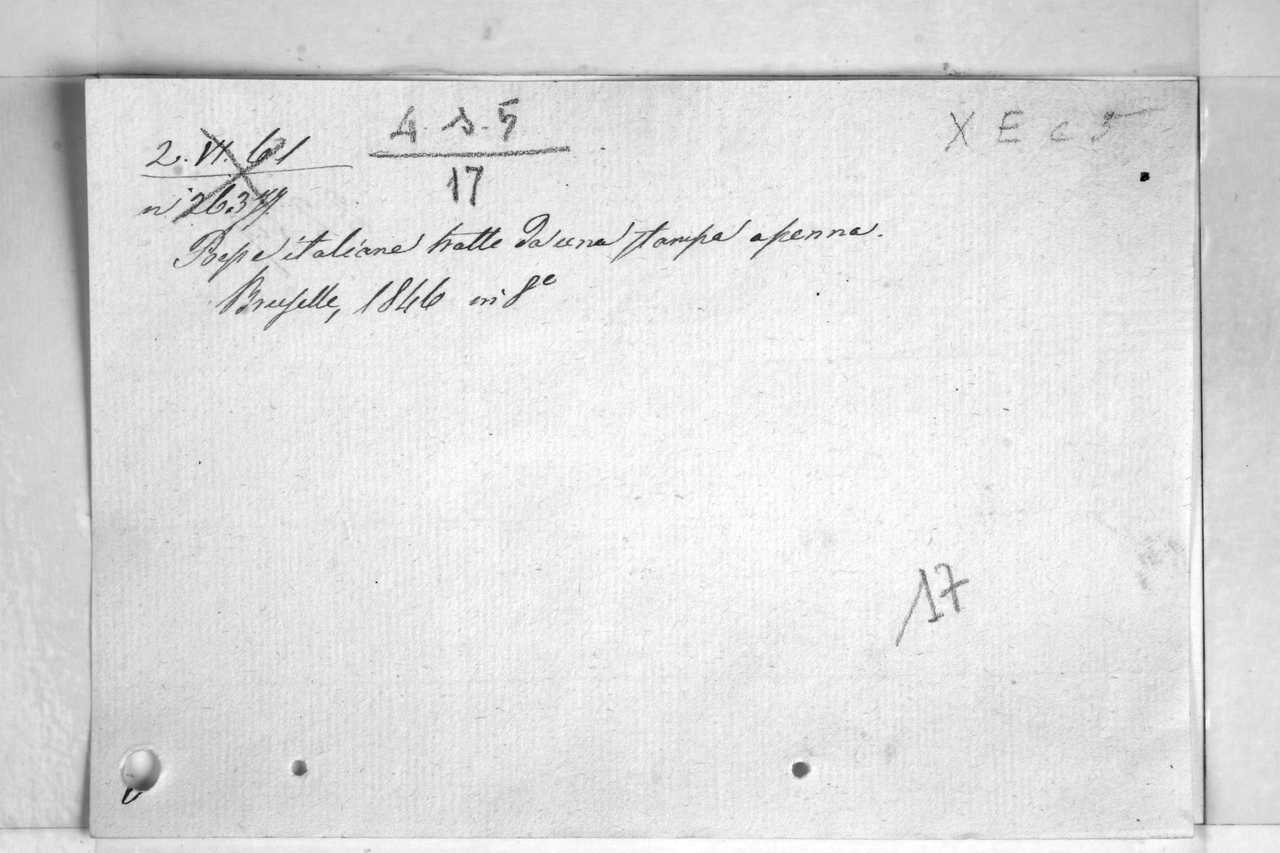 2. VI. 61
n° 26377
4. s. 5
17
X E c 5
italiane tratte da una stampa a penna.
Bruselle, 1846 in 8°
17